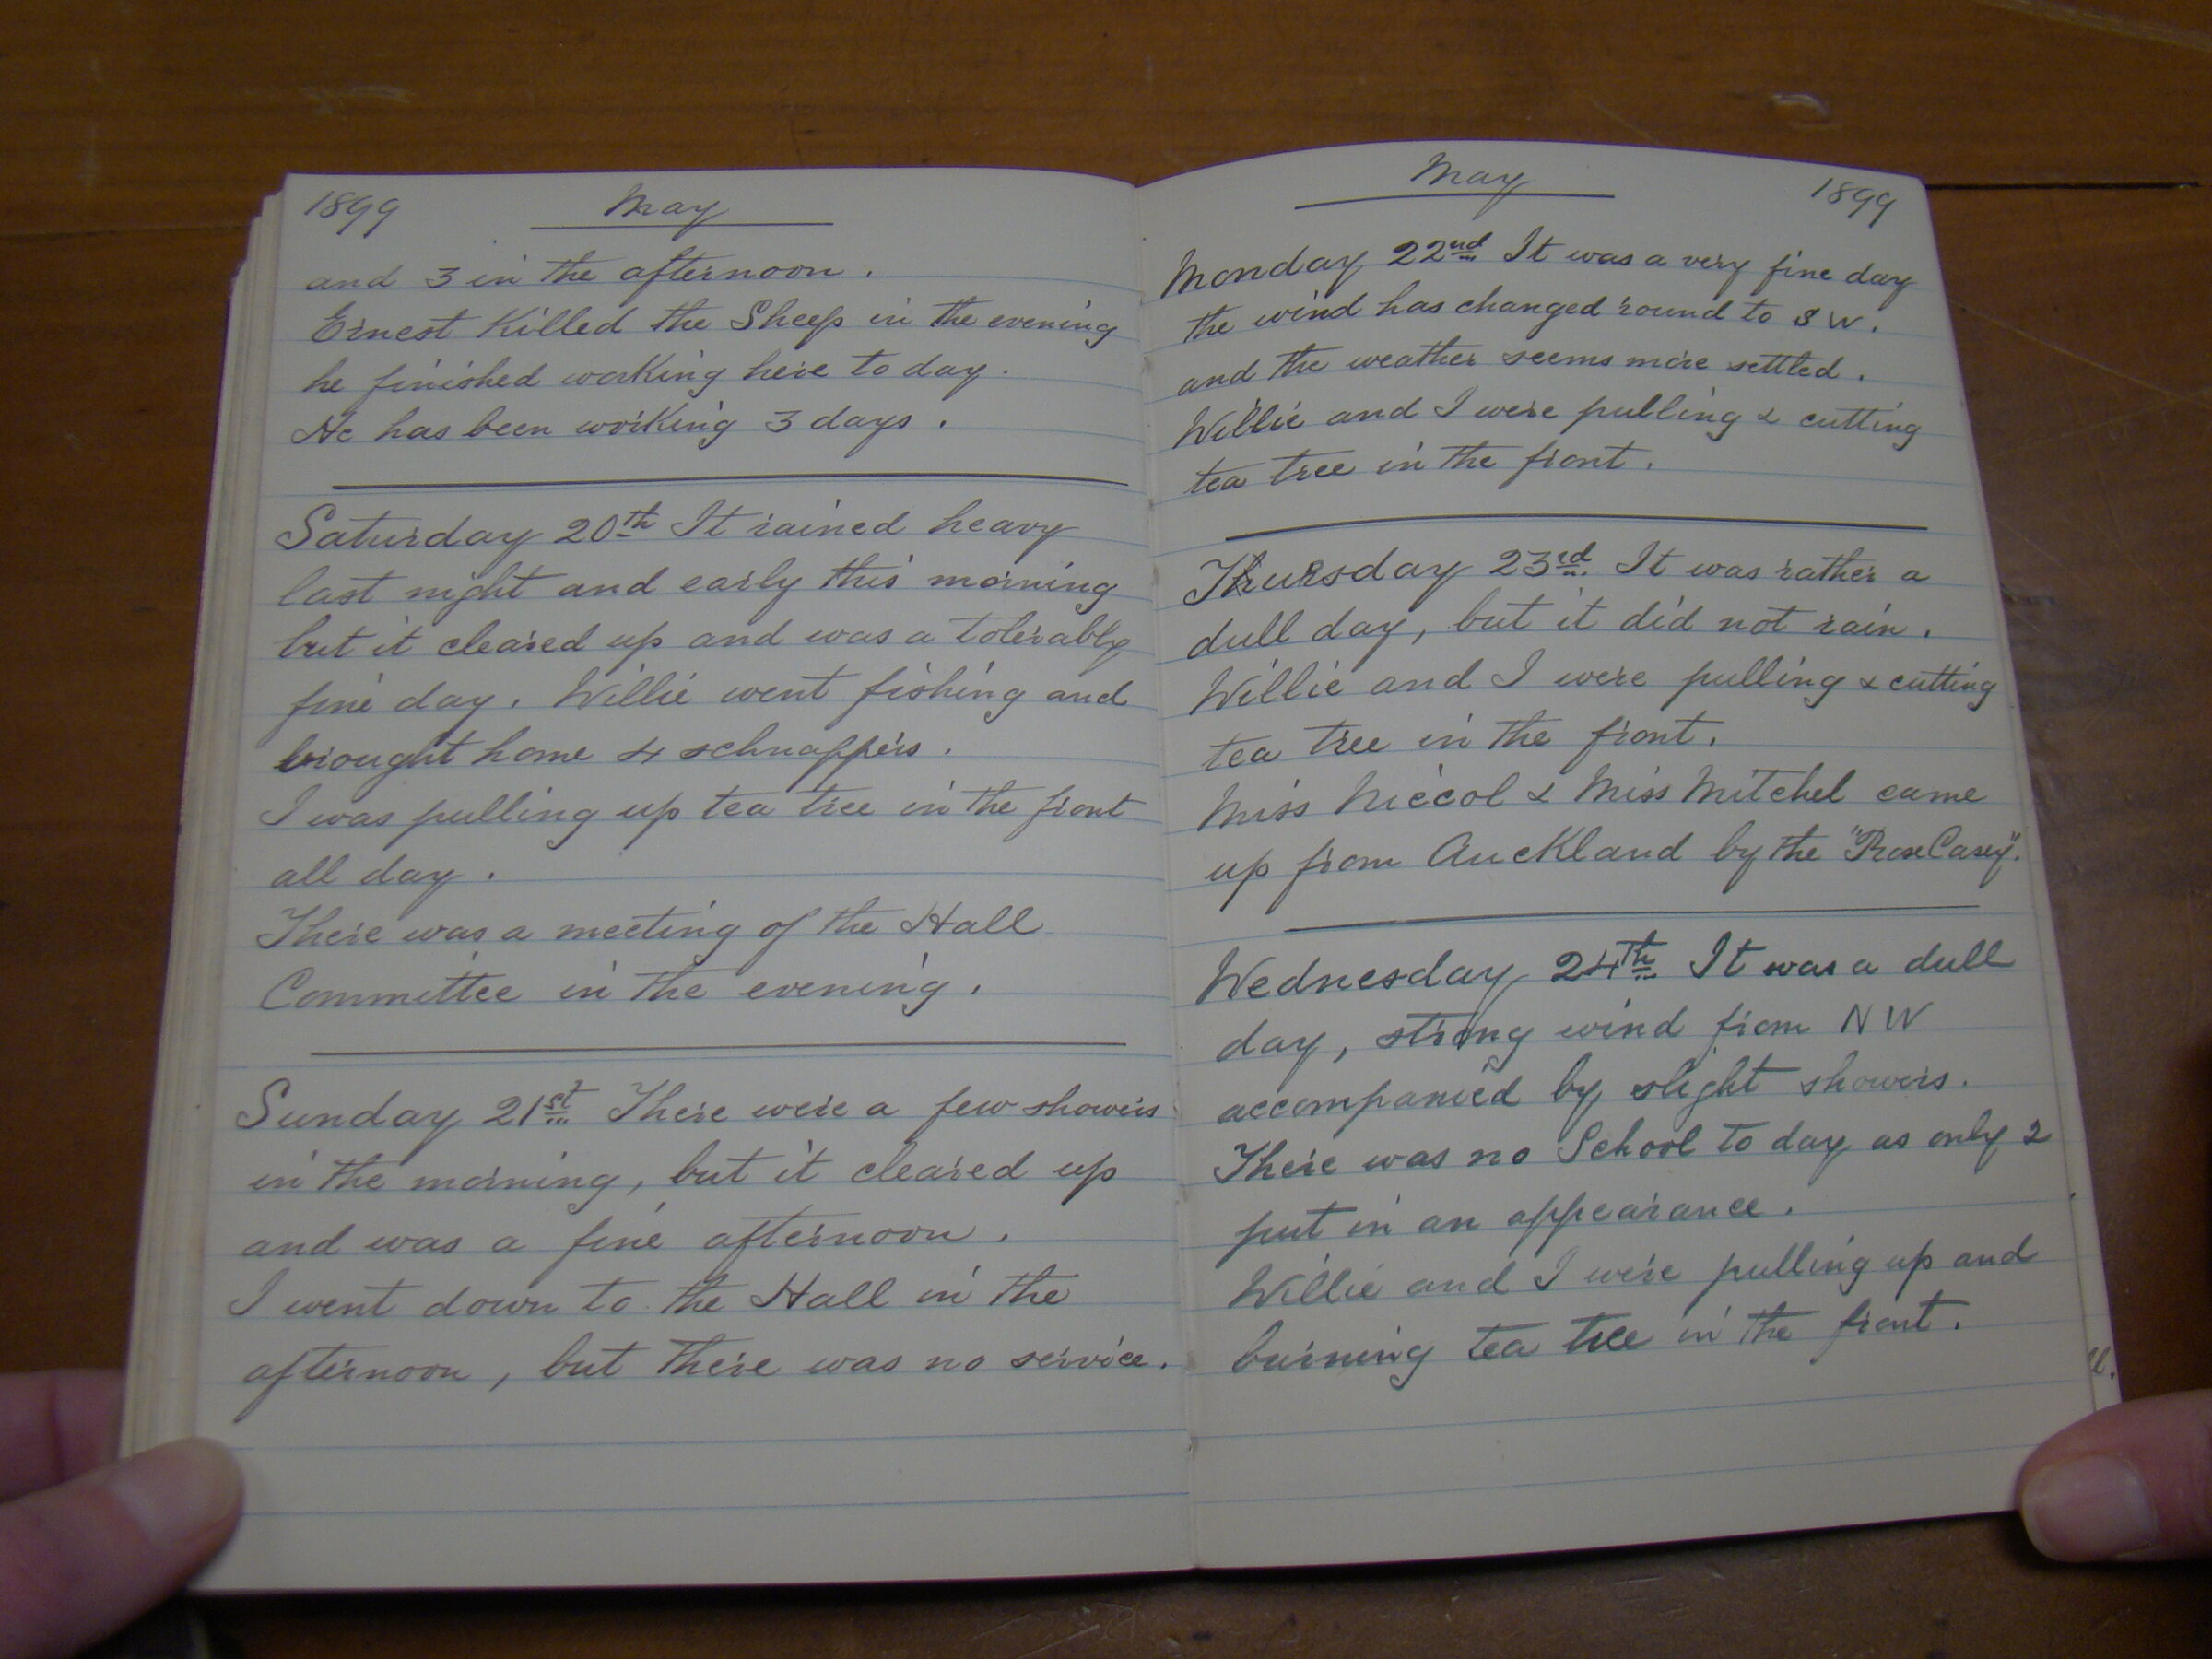 1899 May
and 3 in the afternoon.
Ernest Killed the Sheep in the evening
he finished working here to day.
He has been working 3 days.
Saturday 20th It rained heavy
last night and early this morning
but it cleared up and was a tolerably
fine day. Willie went fishing and
brought home 4 schnappers.
I was pulling up tea tree in the front
all day.
There was a meeting of the Hall
Committee in the evening.
Sunday 21st There were a few showers
in the morning, but it cleared up
and was a fine afternoon.
I went down to the Hall in the
afternoon, but there was no service.
May 1899
Monday 22nd It was a very fine day
the wind has changed round to S W.
and the weather seems more settled.
Willie and I were pulling & cutting
tea tree in the front.
Thursday 23rd. It was rather a
dull day, but it did not rain.
Willie and I were pulling & cutting
tea tree in the front.
Miss Niccol & Miss Mitchel came
up from Auckland by the "Rose Casey".
Wednesday 24th It was a dull
day, strong wind from N W
accompanied by slight showers.
There was no School to day as only 2
put in an appearance.
Willie and I were pulling up and
burning tea tree in the front.